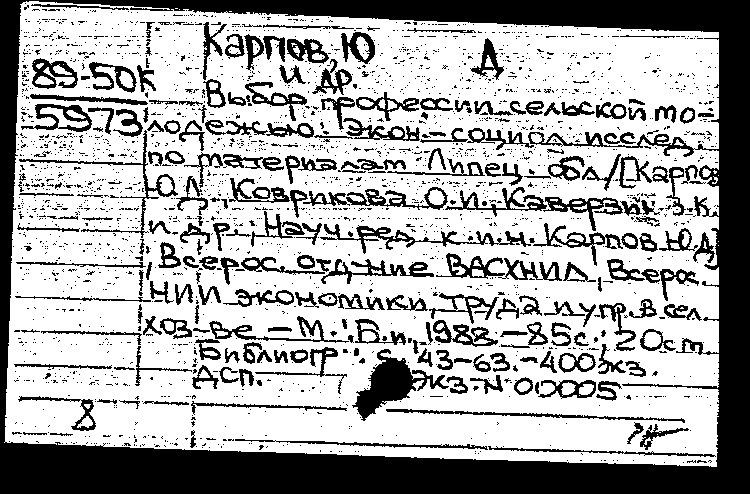 Карпов, Ю Д
и др.
89-50к
5973
Выбор профессии сельской мо-
лодежью: Экон.-социол исслед.
по материалам Липец. обл/[Карпов
Ю.Д., Коврикова О.И., Каверзин З.К.
и др.; Науч.ред. к.и.н. Карпов Ю.Д]
; Всерос. отд-ние ВАСХНИЛ, Всерос.
НИИ экономики, труда и упр. в сел.
хоз-ве - М.: Б.и., 1988. - 85с.; 20см
Библиогр.: с. 43-63. - 400экз.
ДСП. Экз. N 00005.
8